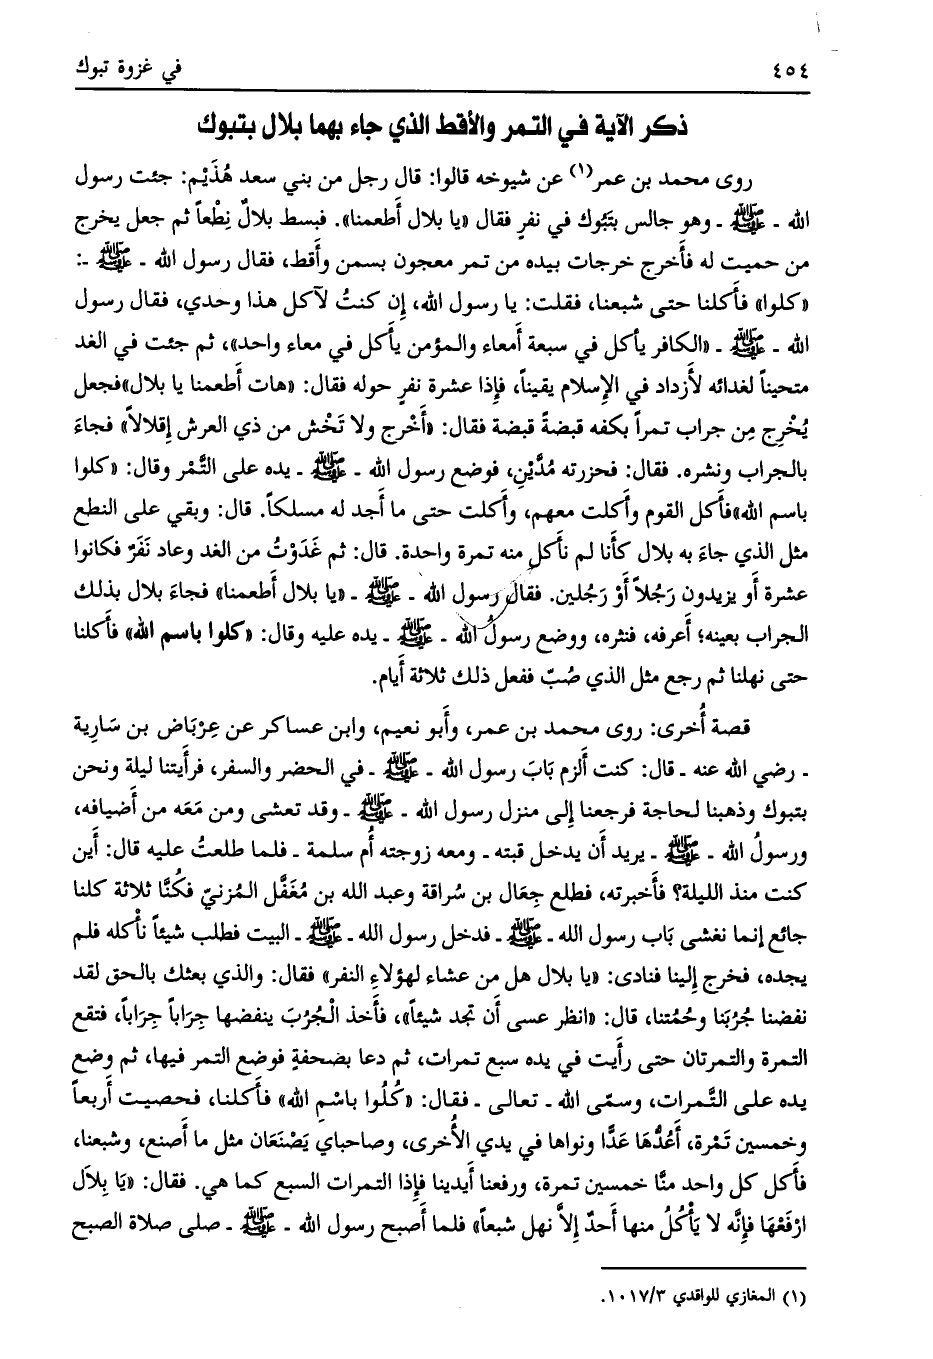 ٤٥٤ في غزوة تبوك
ذكر الآية في التمر والأقط الذي جاء بهما بلال بتبوك
روى محمد بن عمر(١) عن شيوخه قالوا: قال رجل من بني سعد هُذَيْم: جئت رسول
الله ـ ﷺ ـ وهو جالس بتَبُوك في نفرٍ فقال «يا بلال أَطعمنا». فبسط بلالٌ نِطْعاً ثم جعل يخرج
من حميت له فأَخرج خرجات بيده من تمر معجون بسمن وأَقط، فقال رسول الله ـ ﷺ ـ:
«كلوا» فأَكلنا حتى شبعنا، فقلت: يا رسول الله، إن كنتُ لآكل هذا وحدي، فقال رسول
الله ـ ﷺ ـ «الكافر يأْكل في سبعة أَمعاء والمؤمن يأْكل في معاء واحد»، ثم جئت في الغد
متحيناً لغدائه لأَزداد في الإِسلام يقيناً، فإذا عشرة نفرٍ حوله فقال: «هات أَطعمنا يا بلال»فجعل
يُخْرِج مِن جراب تمراً بكفه قبضةً قبضة فقال: «أَخْرج ولا تَخْش من ذي العرش إقلالاً» فجاءَ
بالجراب ونشره. فقال: فحزرته مُدَّيْنِ، فوضع رسول الله ـ ﷺ ـ يده على التَّمْر وقال: «كلوا
باسم الله»فأَكل القوم وأَكلت معهم، وأَكلت حتى ما أَجد له مسلكاً. قال: وبقي على النطع
مثل الذي جاءَ به بلال كأَنا لم نأْكل منه تمرة واحدة. قال: ثم غَدَوْتُ من الغد وعاد نَفَرٌ فكانوا
عشرة أَو يزيدون رَجُلاً أَوْ رَجُلين. فقال رسول الله ـ ﷺ ـ «يا بلال أَطعمنا» فجاءَ بلال بذلك
الجراب بعينه؛ أَعرفه، فنثره، ووضع رسولُ الله ـ ﷺ ـ يده عليه وقال: «كلوا باسم الله» فأَكلنا
حتى نهلنا ثم رجع مثل الذي صُبّ ففعل ذلك ثلاثة أَيام.
قصة أُخرى: روى محمد بن عمر، وأَبو نعيم، وابن عساكر عن عِرْبَاض بن سَارِية
ـ رضي الله عنه ـ قال: كنت أَلزم بَابَ رسول الله ـ ﷺ ـ في الحضر والسفر، فرأَيتنا ليلة ونحن
بتبوك وذهبنا لحاجة فرجعنا إلى منزل رسول الله ـ ﷺ ـ وقد تعشى ومن مَعَه من أَضيافه،
ورسولُ الله ـ ﷺ ـ يريد أَن يدخل قبته ـ ومعه زوجته أُم سلمة ـ فلما طلعتُ عليه قال: أَين
كنت منذ الليلة؟ فأَخبرته، فطلع جِعَال بن سُراقة وعبد الله بن مُغَفَّل المزنيّ فكُنَّا ثلاثة كلنا
جائع إنما نغشى بَاب رسول الله ـ ﷺ ـ فدخل رسول الله ـ ﷺ ـ البيت فطلب شيئاً نأْكله فلم
يجده، فخرج إلينا فنادى: «يا بلال هل من عشاء لهؤلاءِ النفر» فقال: والذي بعثك بالحق لقد
نفضنا جُرُبَنا وحُمُتنا، قال: «انظر عسى أَن تجد شيئاً»، فأَخذ الْجُرُبَ ينفضها جِرَاباً جِرَاباً، فتقع
التمرة والتمرتان حتى رأَيت في يده سبع تمرات، ثم دعا بصَحفةٍ فوضع التمر فيها، ثم وضع
يده على التَّمرات، وسمّى الله ـ تعالى ـ فقال: «كُلُوا باسْمِ الله» فأَكلنا، فحصيت أَربعاً
وخمسين تَمْرة، أَعُدُّهَا عَدًّا ونواها في يدي الأُخرى، وصاحباي يَصْنَعَان مثل ما أَصنع، وشبعنا،
فأَكل كل واحد منَّا خمسين تمرة، ورفعنا أَيدينا فإِذا التمرات السبع كما هي. فقال: «يَا بِلاَل
ارْفَعْهَا فإِنَّه لا يَأْكُلُ منها أَحدٌ إلاَّ نهل شبعاً» فلما أَصبح رسول الله ـ ﷺ ـ صلى صلاة الصبح
(١) المغازي للواقدي ١٠١٧/٣.